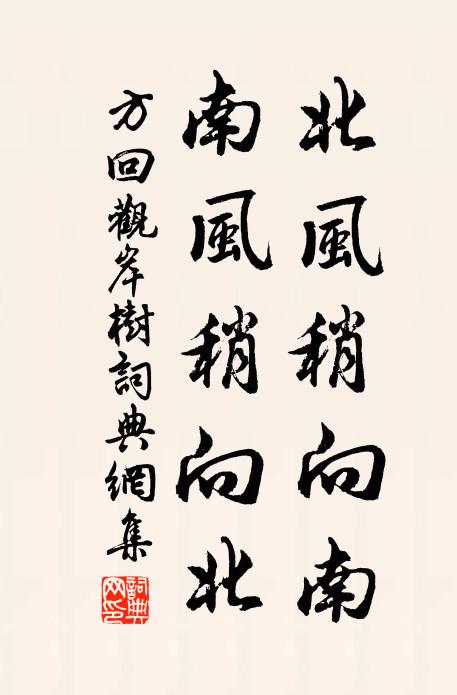 北風稍向南
南風稍向北
方回觀岸樹詞典網集
詞典
网印